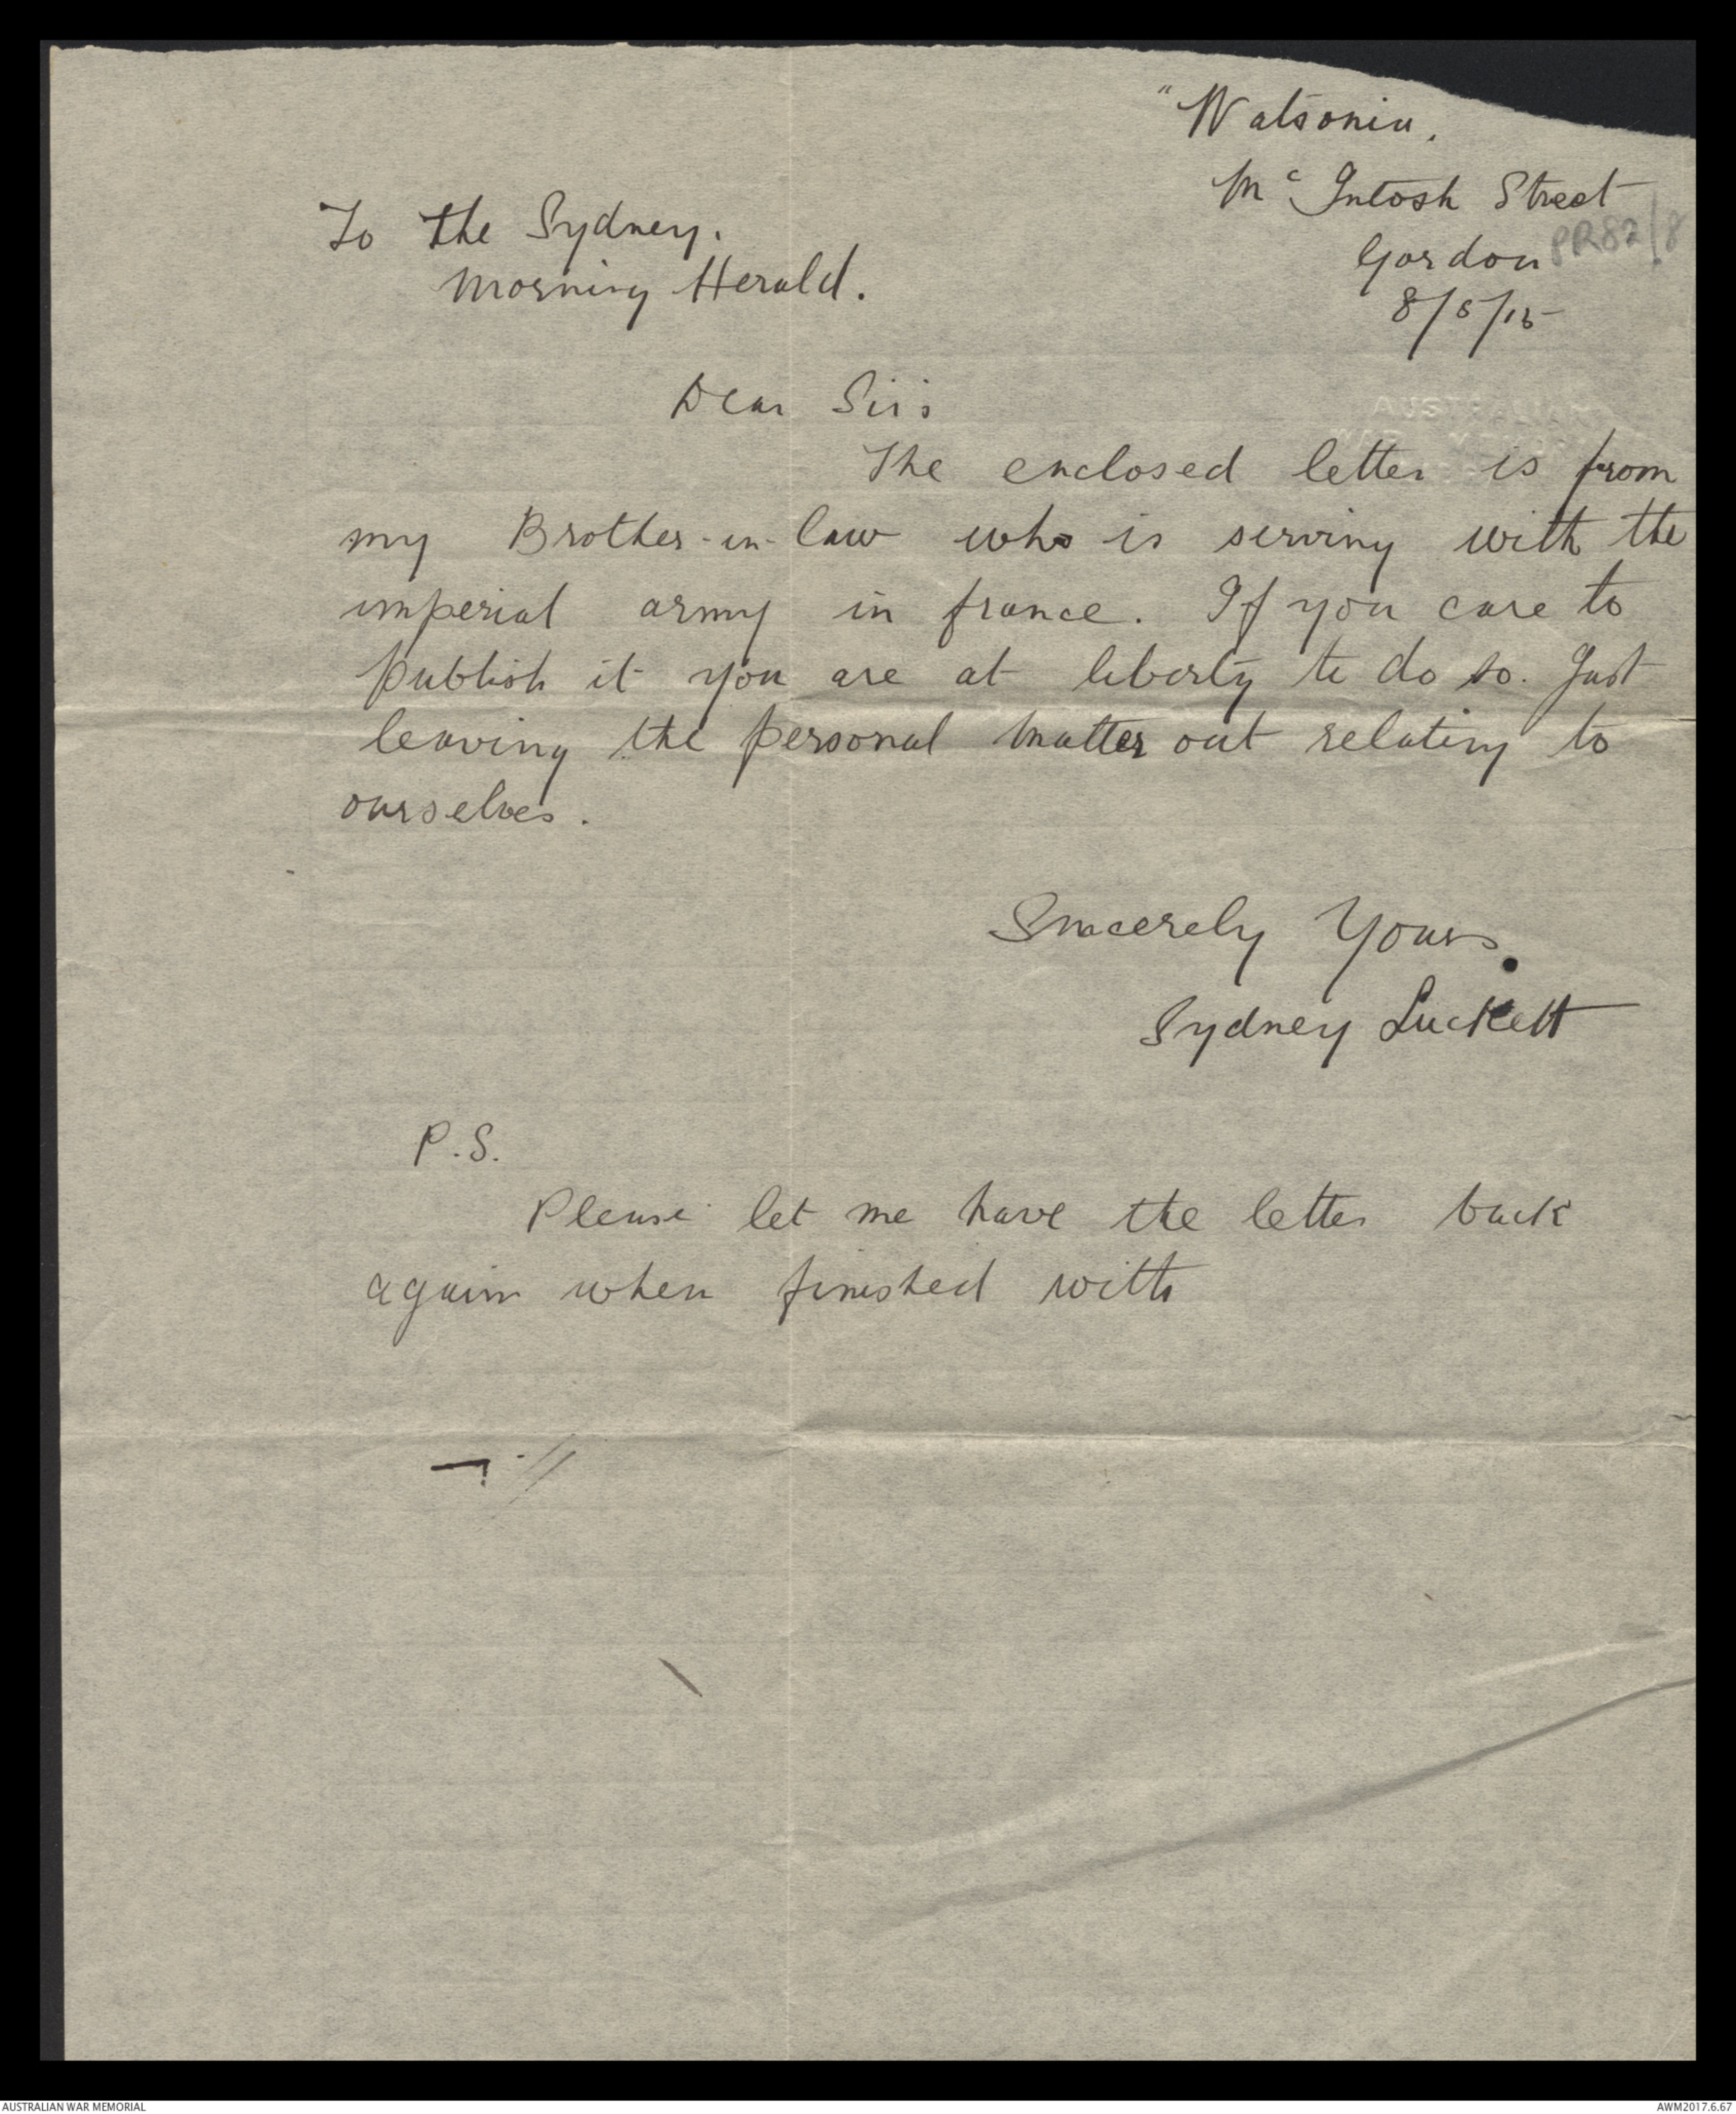 "Watsonia.
Mc Intosh Street
Gordon
PR82/8
8/5/15
To the Sydney.
Morning Herald.
Dear Sir:
The enclosed letter is from
my Brother-in-law who is serving with the
imperial army in france. If you care to
publish it you are at liberty to do so. Just
leaving the personal matter out relating to
ourselves.
Sincerely Yours.
Sydney Luckett
P.S.
Please let me have the letter back
again when finished with
AUSTRALIAN WAR MEMORIAL
AWM2017.6.67